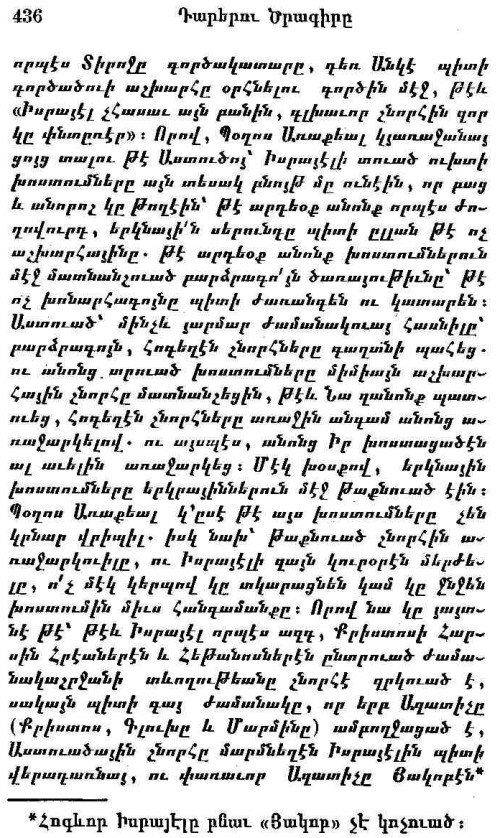 436
Դարերու Ծրագիրը
որպէս Տիրոջը գործակատարը, դեռ Անկէ պիտի
գործածուի աշխարհը օրհնելու գործին մէջ, թէև
«Իսրայէլ չհասաւ այն բանին, գլխաւոր շնորհին զոր
կը փնտռէր»։ Որով, Պօղոս Առաքեալ կյառաջանայ
ցոյց տալու թէ Աստուծոյ՝ Իսրայէլի տուած ուխտի
խոստումները այն տեսակ բնոյթ մը ունէին, որ բաց
և անորոշ կը թողէին՝ թէ արդեօք անոնք որպէս ժո-
ղովուրդ, երկնայի՛ն սերունդը պիտի ըլլան թէ ոչ
աշխարհայինը. թէ արդեօք անոնք խոստումներուն
մէջ մատնանշուած բարձրագո՛յն ծառայութիւնը՝ թէ
ո՛չ խոնարհագոյնը պիտի ժառանգեն ու կատարեն։
Աստուած՝ մինչև յարմար ժամանակուայ հասնիլը՝
բարձրագոյն, հոգեղէն շնորհները գաղտնի պահեց.
ու անոնց տրուած խոստումները միմիայն աշխար-
հային շնորհը մատնանշեցին, թէև Նա զանոնք պատ-
ուեց, հոգեղէն շնորհները առաջին անգամ անոնց ա-
ռաջարկելով. ու այսպէս, անոնց Իր խոստացածէն
ալ աւելին առաջարկեց։ Մէկ խօսքով, երկնային
խոստումները երկրայիններուն մէջ թաքնուած էին։
Պօղոս Առաքեալ կ՚ըսէ թէ այս խոստումները չեն
կրնար վրիպիլ. իսկ նախ՝ թաքնուած շնորհին ա-
ռաջարկուիլը, ու Իսրայէլի զայն կուրօրէն մերժե-
լը, ո՛չ մէկ կերպով կը տկարացնեն կամ կը ջնջեն
խոստումին միւս հանգամանքը։ Որով նա կը յայտ-
նէ թէ՝ թէև Իսրայէլ որպէս ազգ, Քրիստոսի Հար-
սին Հրէաներէն և Հեթանոսներէն ընտրուած ժամա-
նակաշրջանի տևողութեանը շնորհէ զրկուած է,
սակայն պիտի գայ ժամանակը, որ երբ Ազատիչը
(Քրիստոս, Գլուխը և Մարմինը) ամբողջացած է,
Աստուածային շնորհը մարմնեղէն Իսրայէլին պիտի
վերադառնայ, ու փառաւոր Ազատիչը Յակորէն*
*Հոգևոր Իսրայէլը բնաւ «Յակոբ» չէ կոչուած։